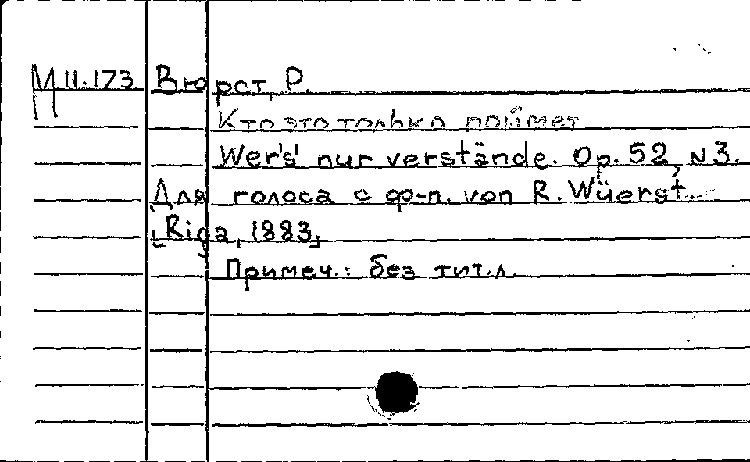 М II.173 Вюрст, Р.
Кто это только поймет
Wer's' nur verstände. Op. 52, N3.
Для голоса с ф-п. von R. Wüerst.
[Riga, 1883]
Примеч.: без тит.л.